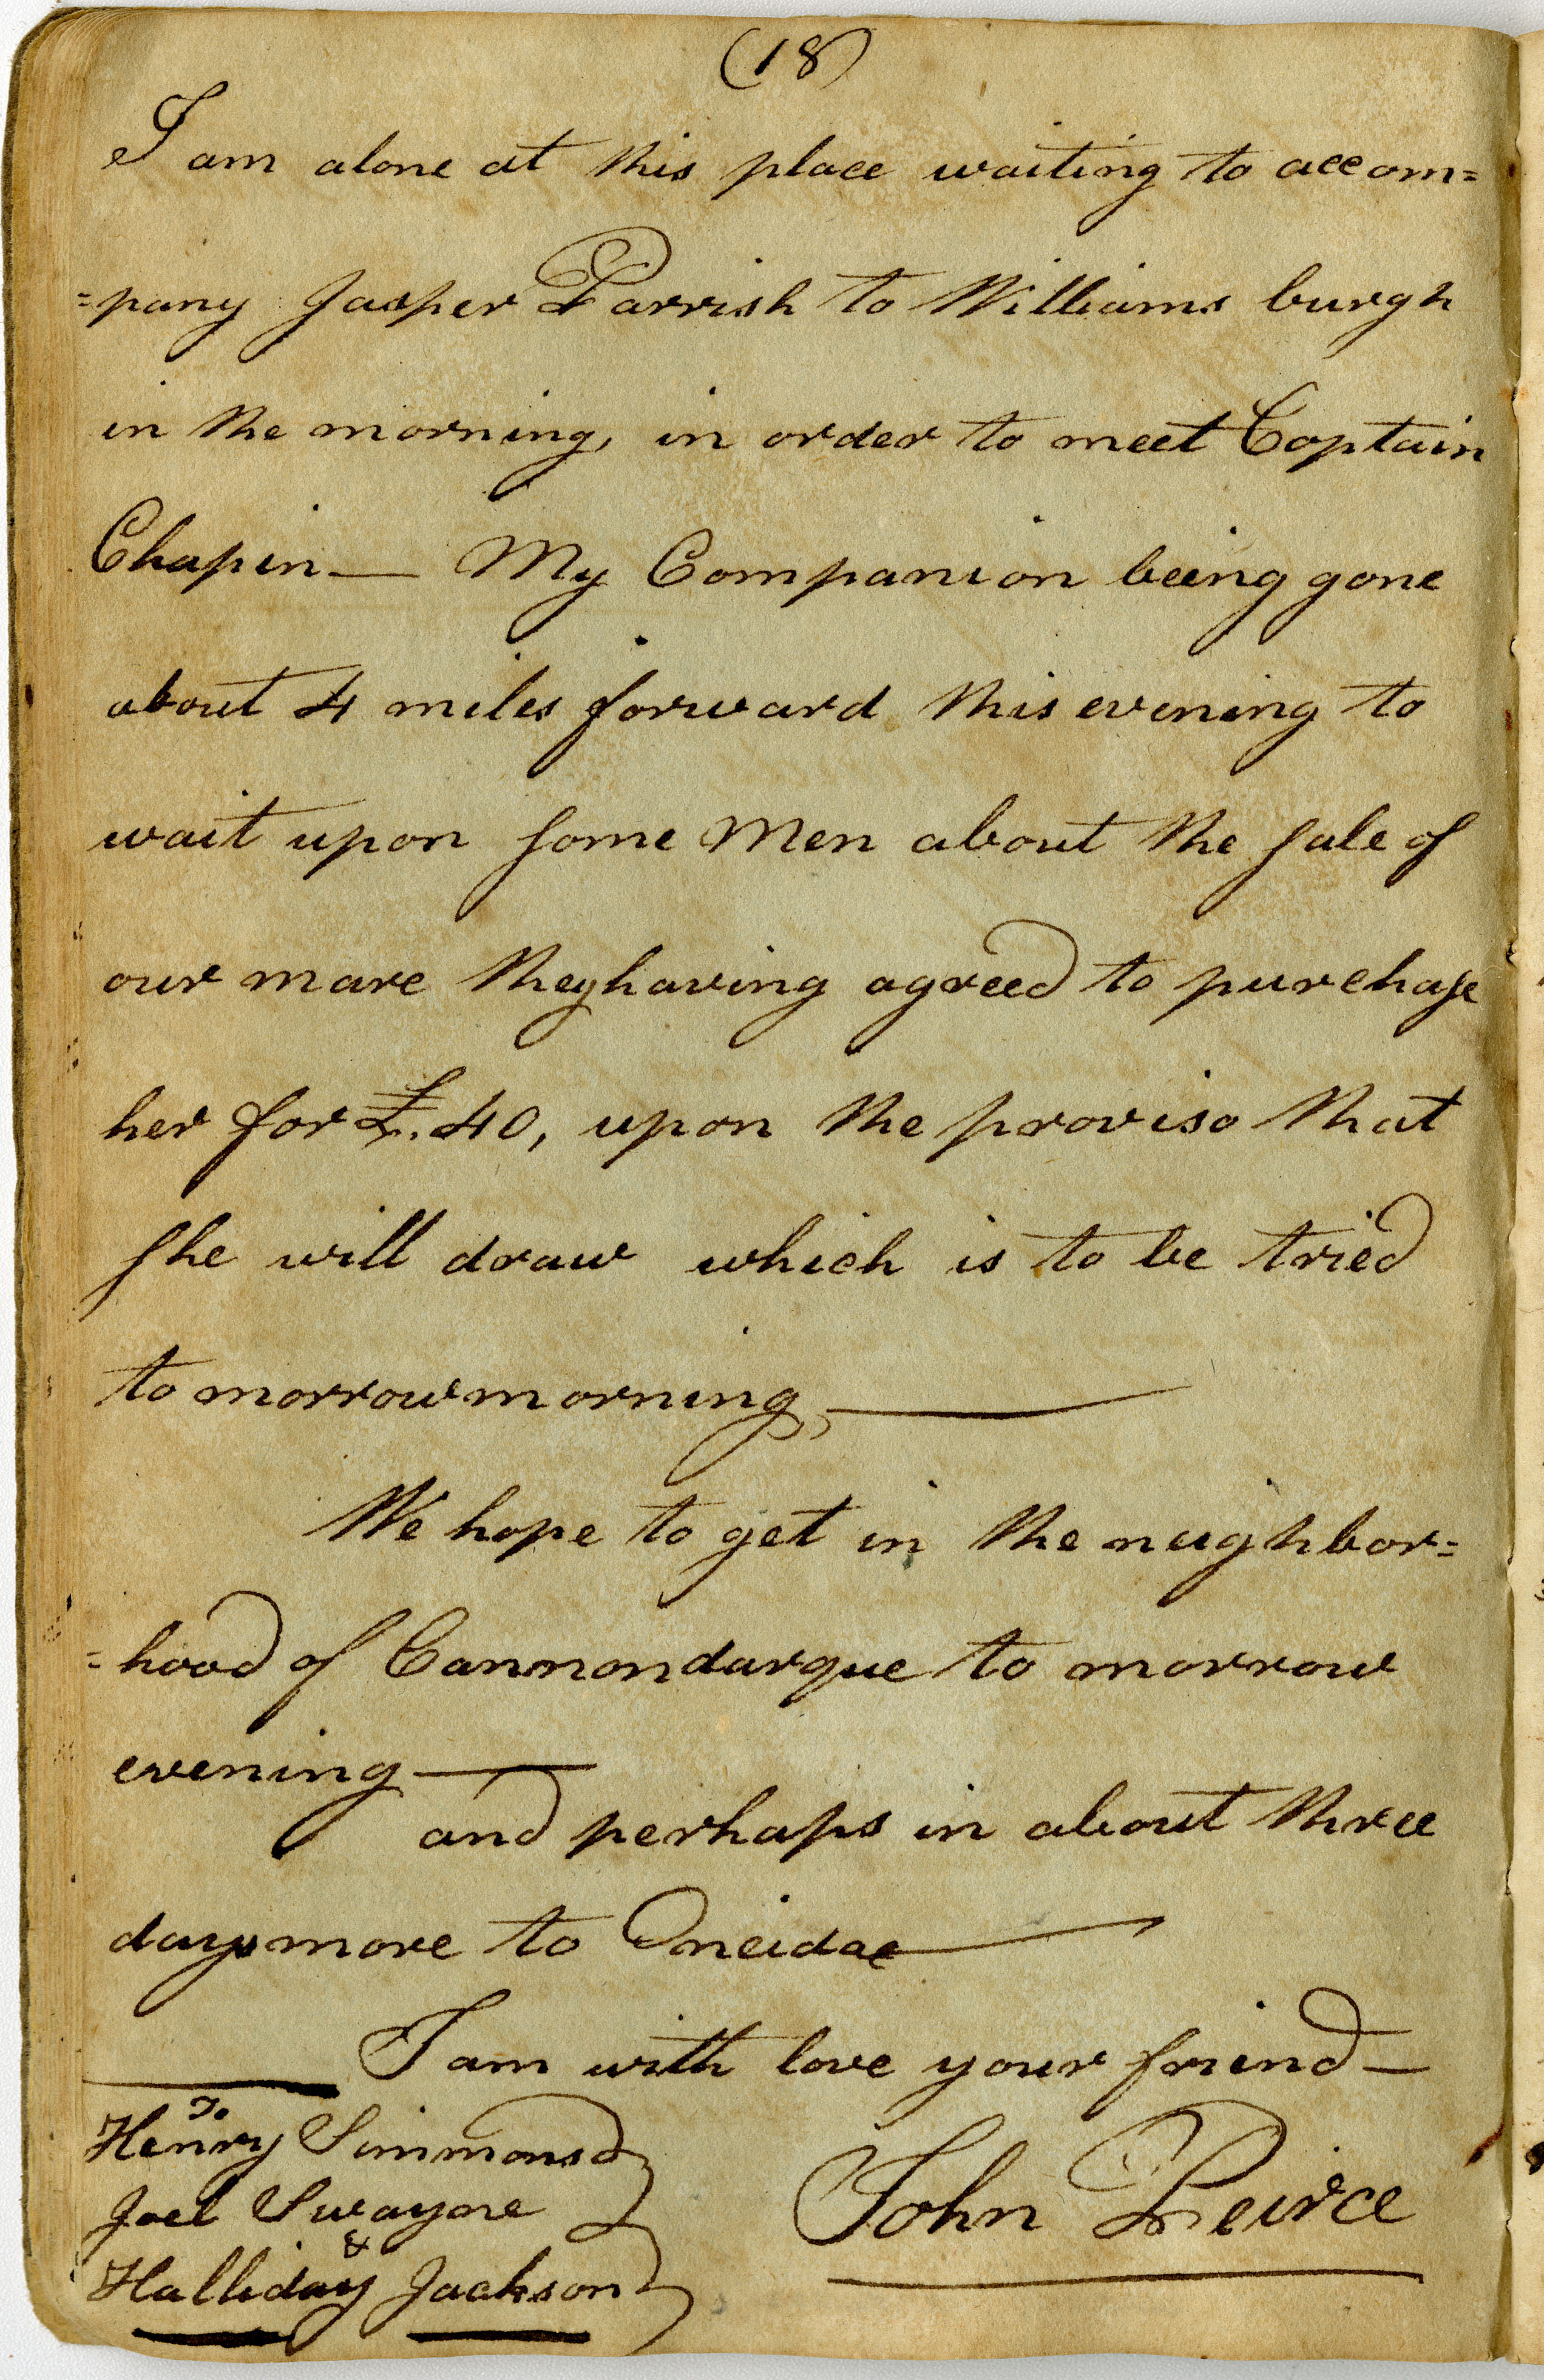 (18)
I am alone at this place waiting to accom=
=pany Jasper Parrish to Williams burgh
in the morning, in order to meet Captain
Chapin— My Companion being gone
about 4 miles forward this evening to
wait upon some Men about the sale of
our mare they having agreed to purchase
her for £.40, upon the proviso that
she will draw which is to be tried
to morrow morning, —
We hope to get in the neighbor=
=hood of Cannondarque to morrow
evening —
and perhaps in about three
days more to Oneidae —
I am with love your friend —
To
Henry Simmons
Joel Swayne
&
Halliday Jackson
John Peirce